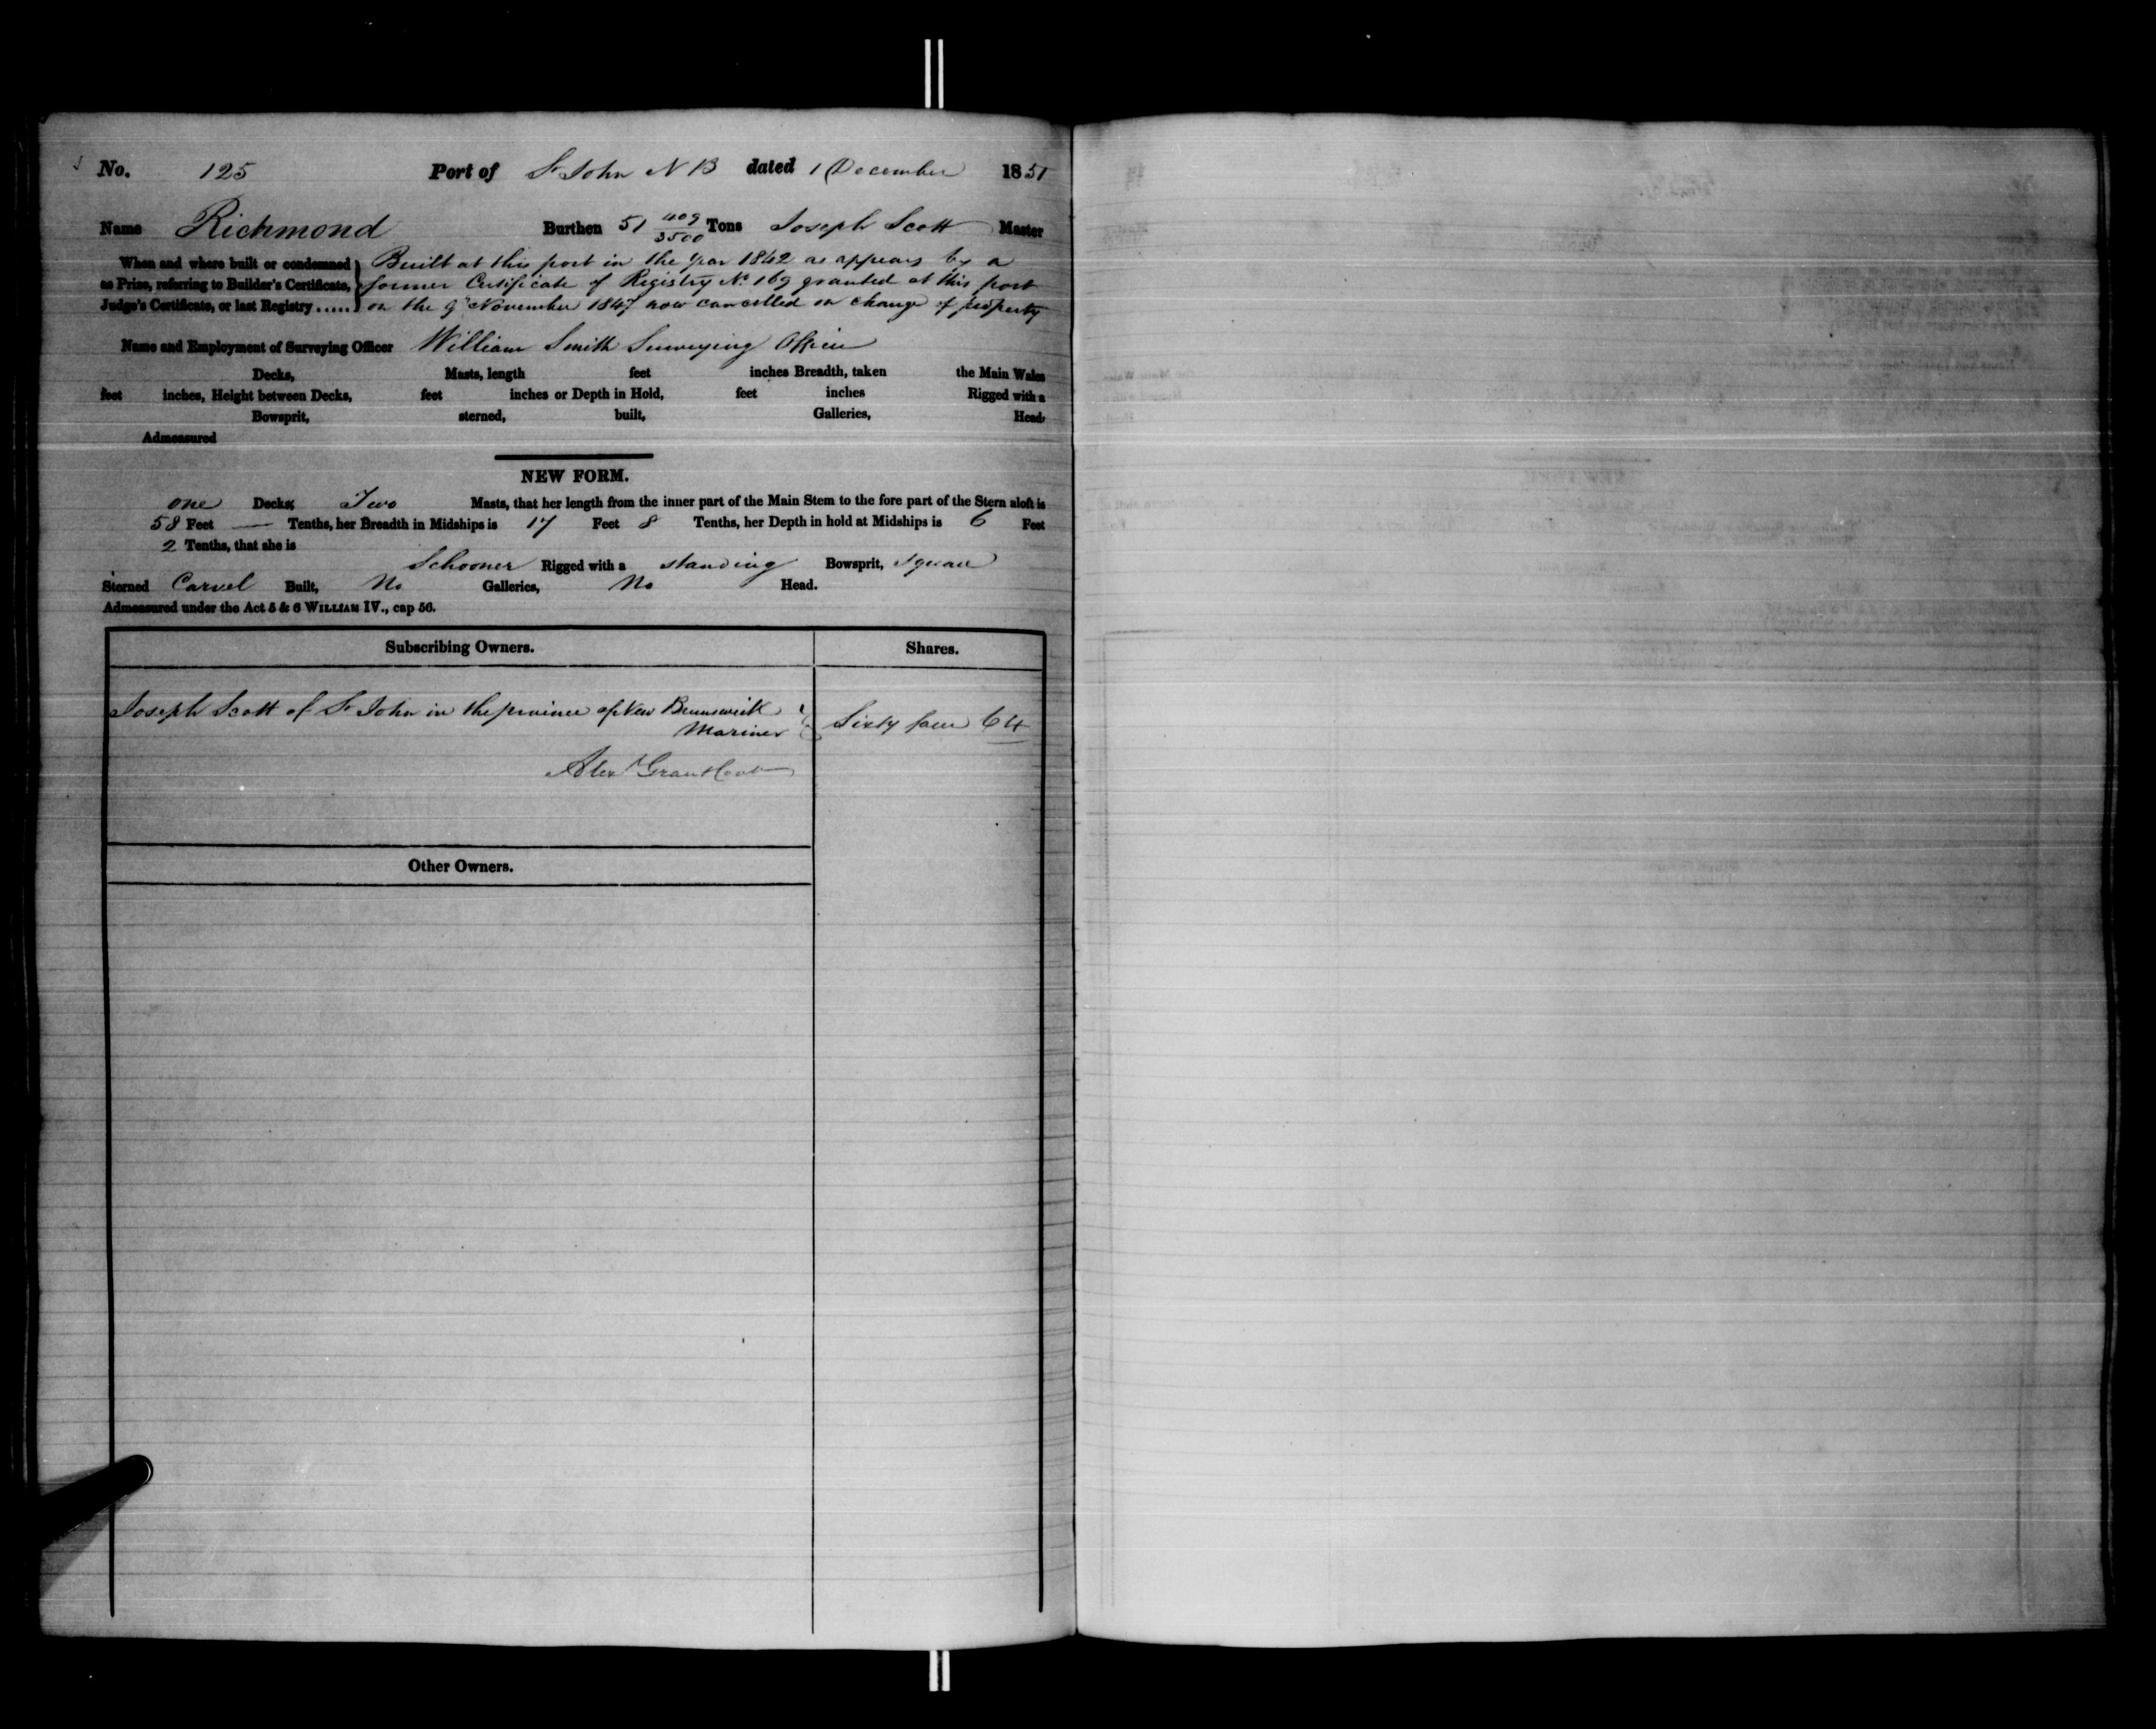 No. 125 Port of St John N B dated 1 December 1851
Name Richmond Burthen 51 409/3500 Tons Joseph Scott Master
When and where built or condemned as Prize, referring to Builder's Certificate, Judge's Certificate, or last Registry.....
Built at this port in the year 1842 as appears by a
former Certificate of Registry No. 169 granted at this port
on the 9th November 1847 now cancelled on change of property
Name and Employment of Surveying Officer William Smith Surveying Officer
Decks, Masts, length feet inches Breadth, taken the Main Wales
feet inches, Height between Decks, feet inches or Depth in Hold, feet inches Rigged with a
Bowsprit, sterned, built, Galleries, Head
Admeasured
NEW FORM.
one Decks Two Masts, that her length from the inner part of the Main Stem to the fore part of the Stern aloft is
58 Feet — Tenths, her Breadth in Midships is 17 Feet 8 Tenths, her Depth in hold at Midships is 6 Feet
2 Tenths, that she is
Schooner Rigged with a standing Bowsprit, square
Sterned Carvel Built, No Galleries, No Head.
Admeasured under the Act 5 & 6 WILLIAM IV., cap 56.
Subscribing Owners. Shares.
Joseph Scott of St John in the province of New Brunswick
Mariner Sixty four 64
Alexr Grant
Other Owners.